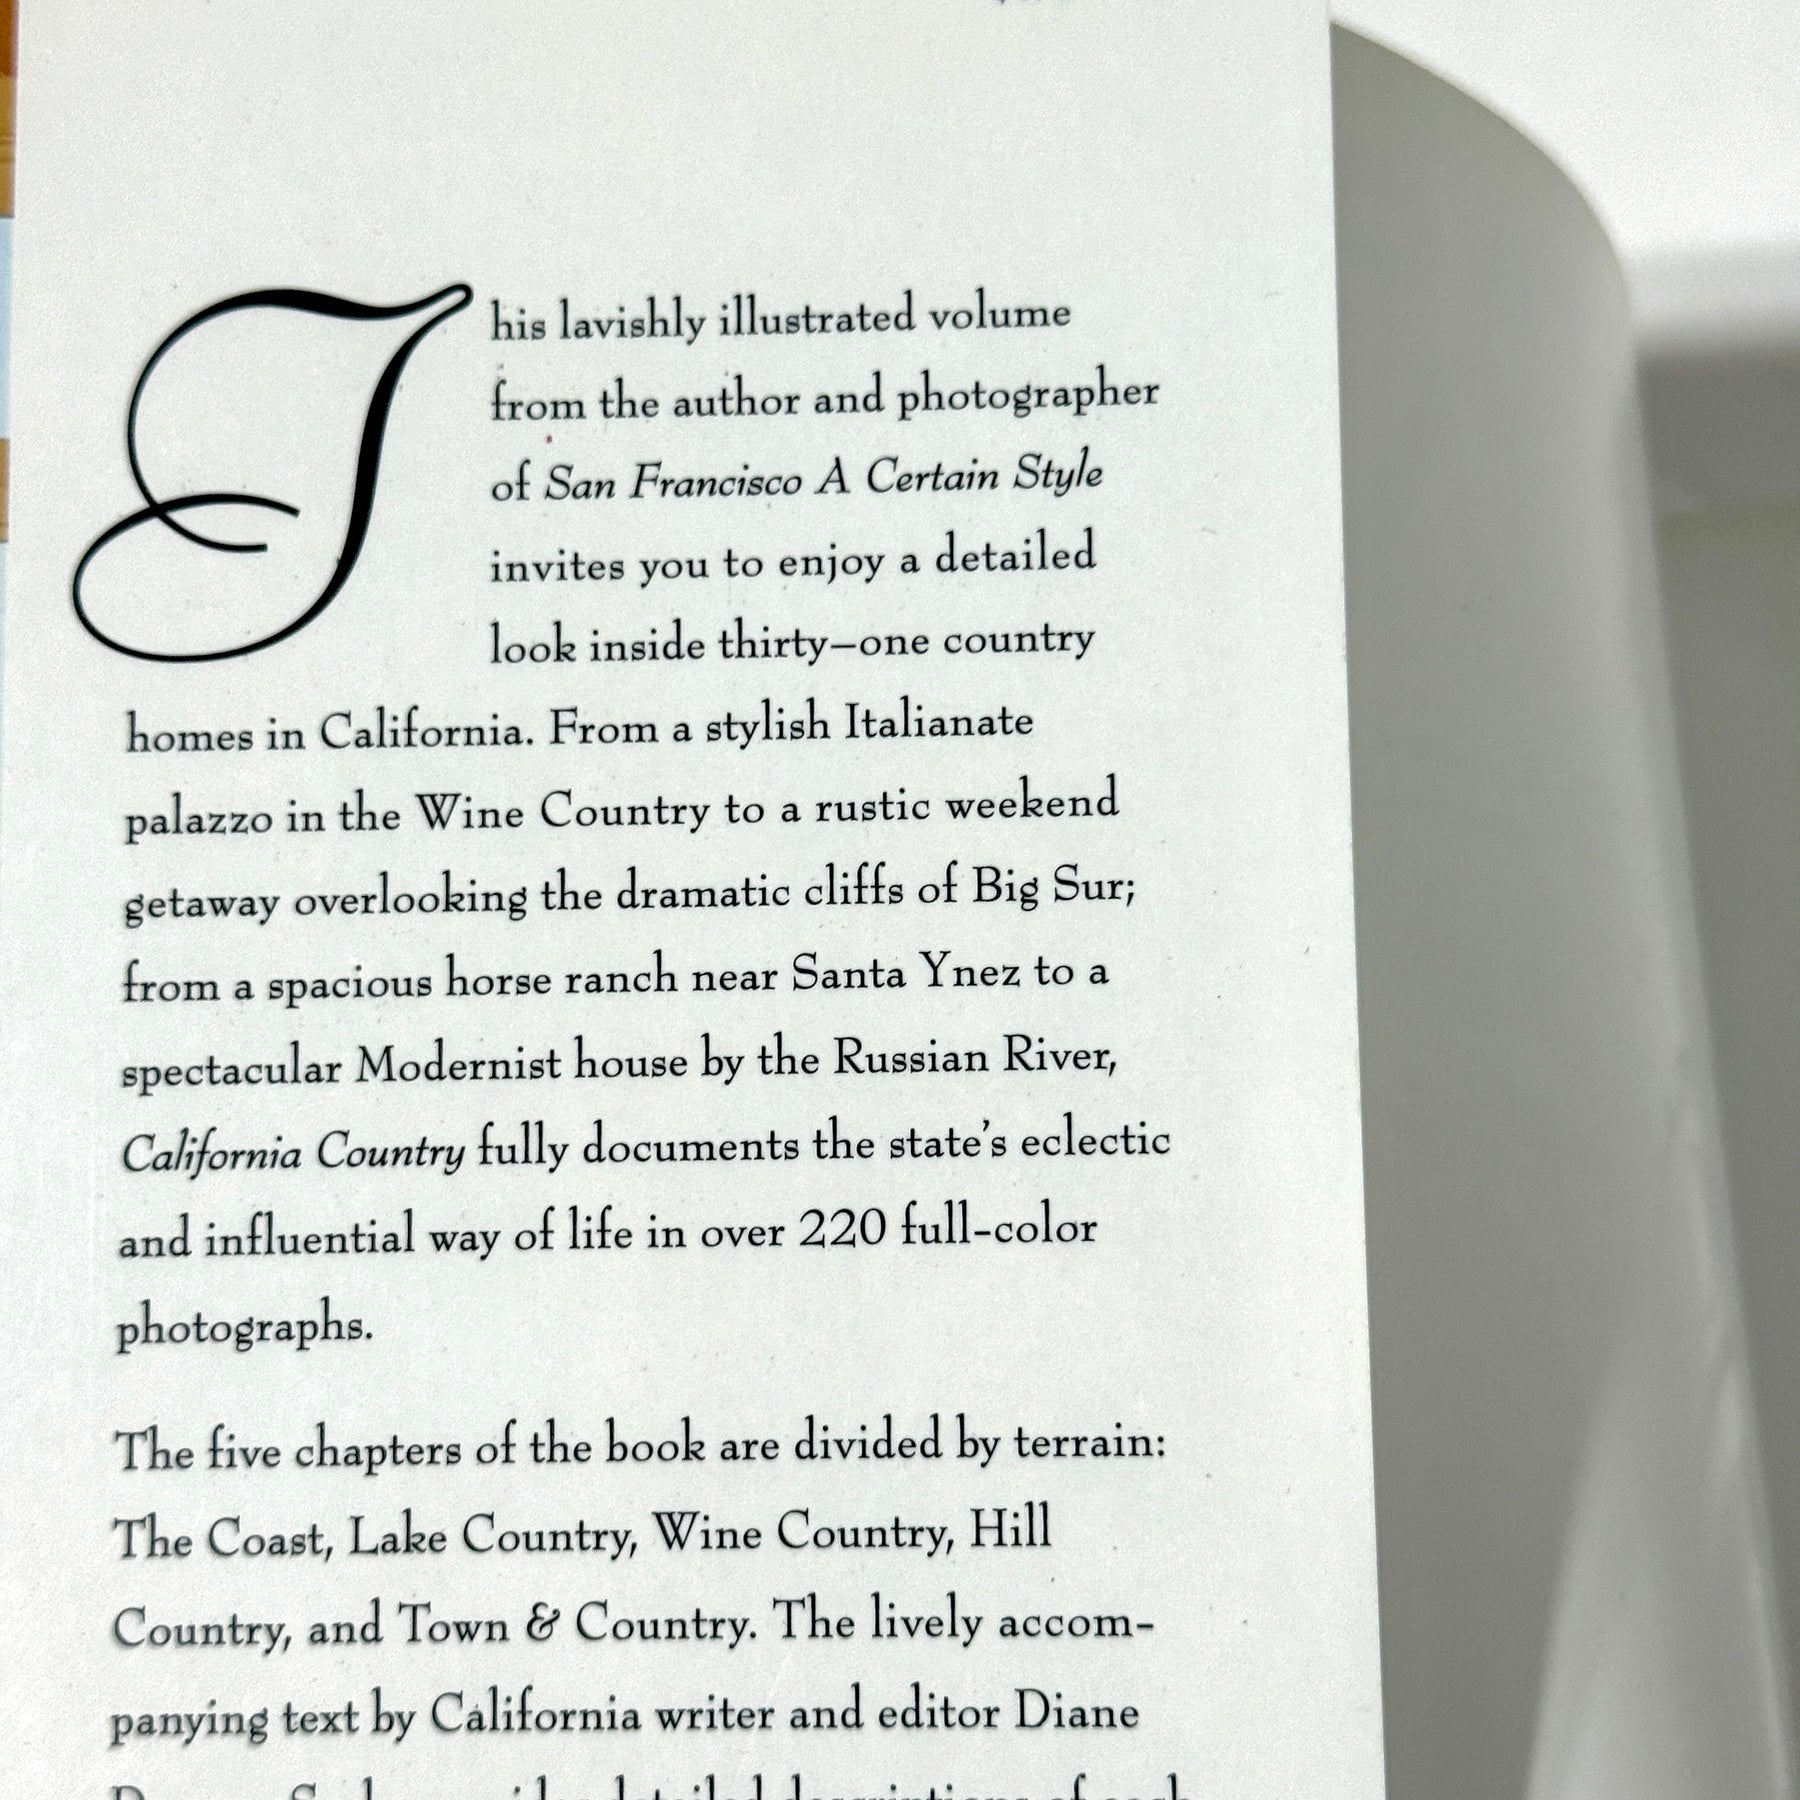 This lavishly illustrated volume
from the author and photographer
of San Francisco A Certain Style
invites you to enjoy a detailed
look inside thirty–one country
homes in California. From a stylish Italianate
palazzo in the Wine Country to a rustic weekend
getaway overlooking the dramatic cliffs of Big Sur;
from a spacious horse ranch near Santa Ynez to a
spectacular Modernist house by the Russian River,
California Country fully documents the state's eclectic
and influential way of life in over 220 full-color
photographs.
The five chapters of the book are divided by terrain:
The Coast, Lake Country, Wine Country, Hill
Country, and Town & Country. The lively accom-
panying text by California writer and editor Diane
detailed descriptions of each